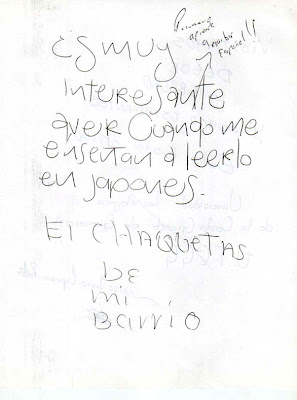 Primero
aprende
a escribir
Español!!
¿s muy
interesante
aver Cuando me
enseñan a leerlo
en japones.
El CHAQUETAS
DE
mi
BArriO